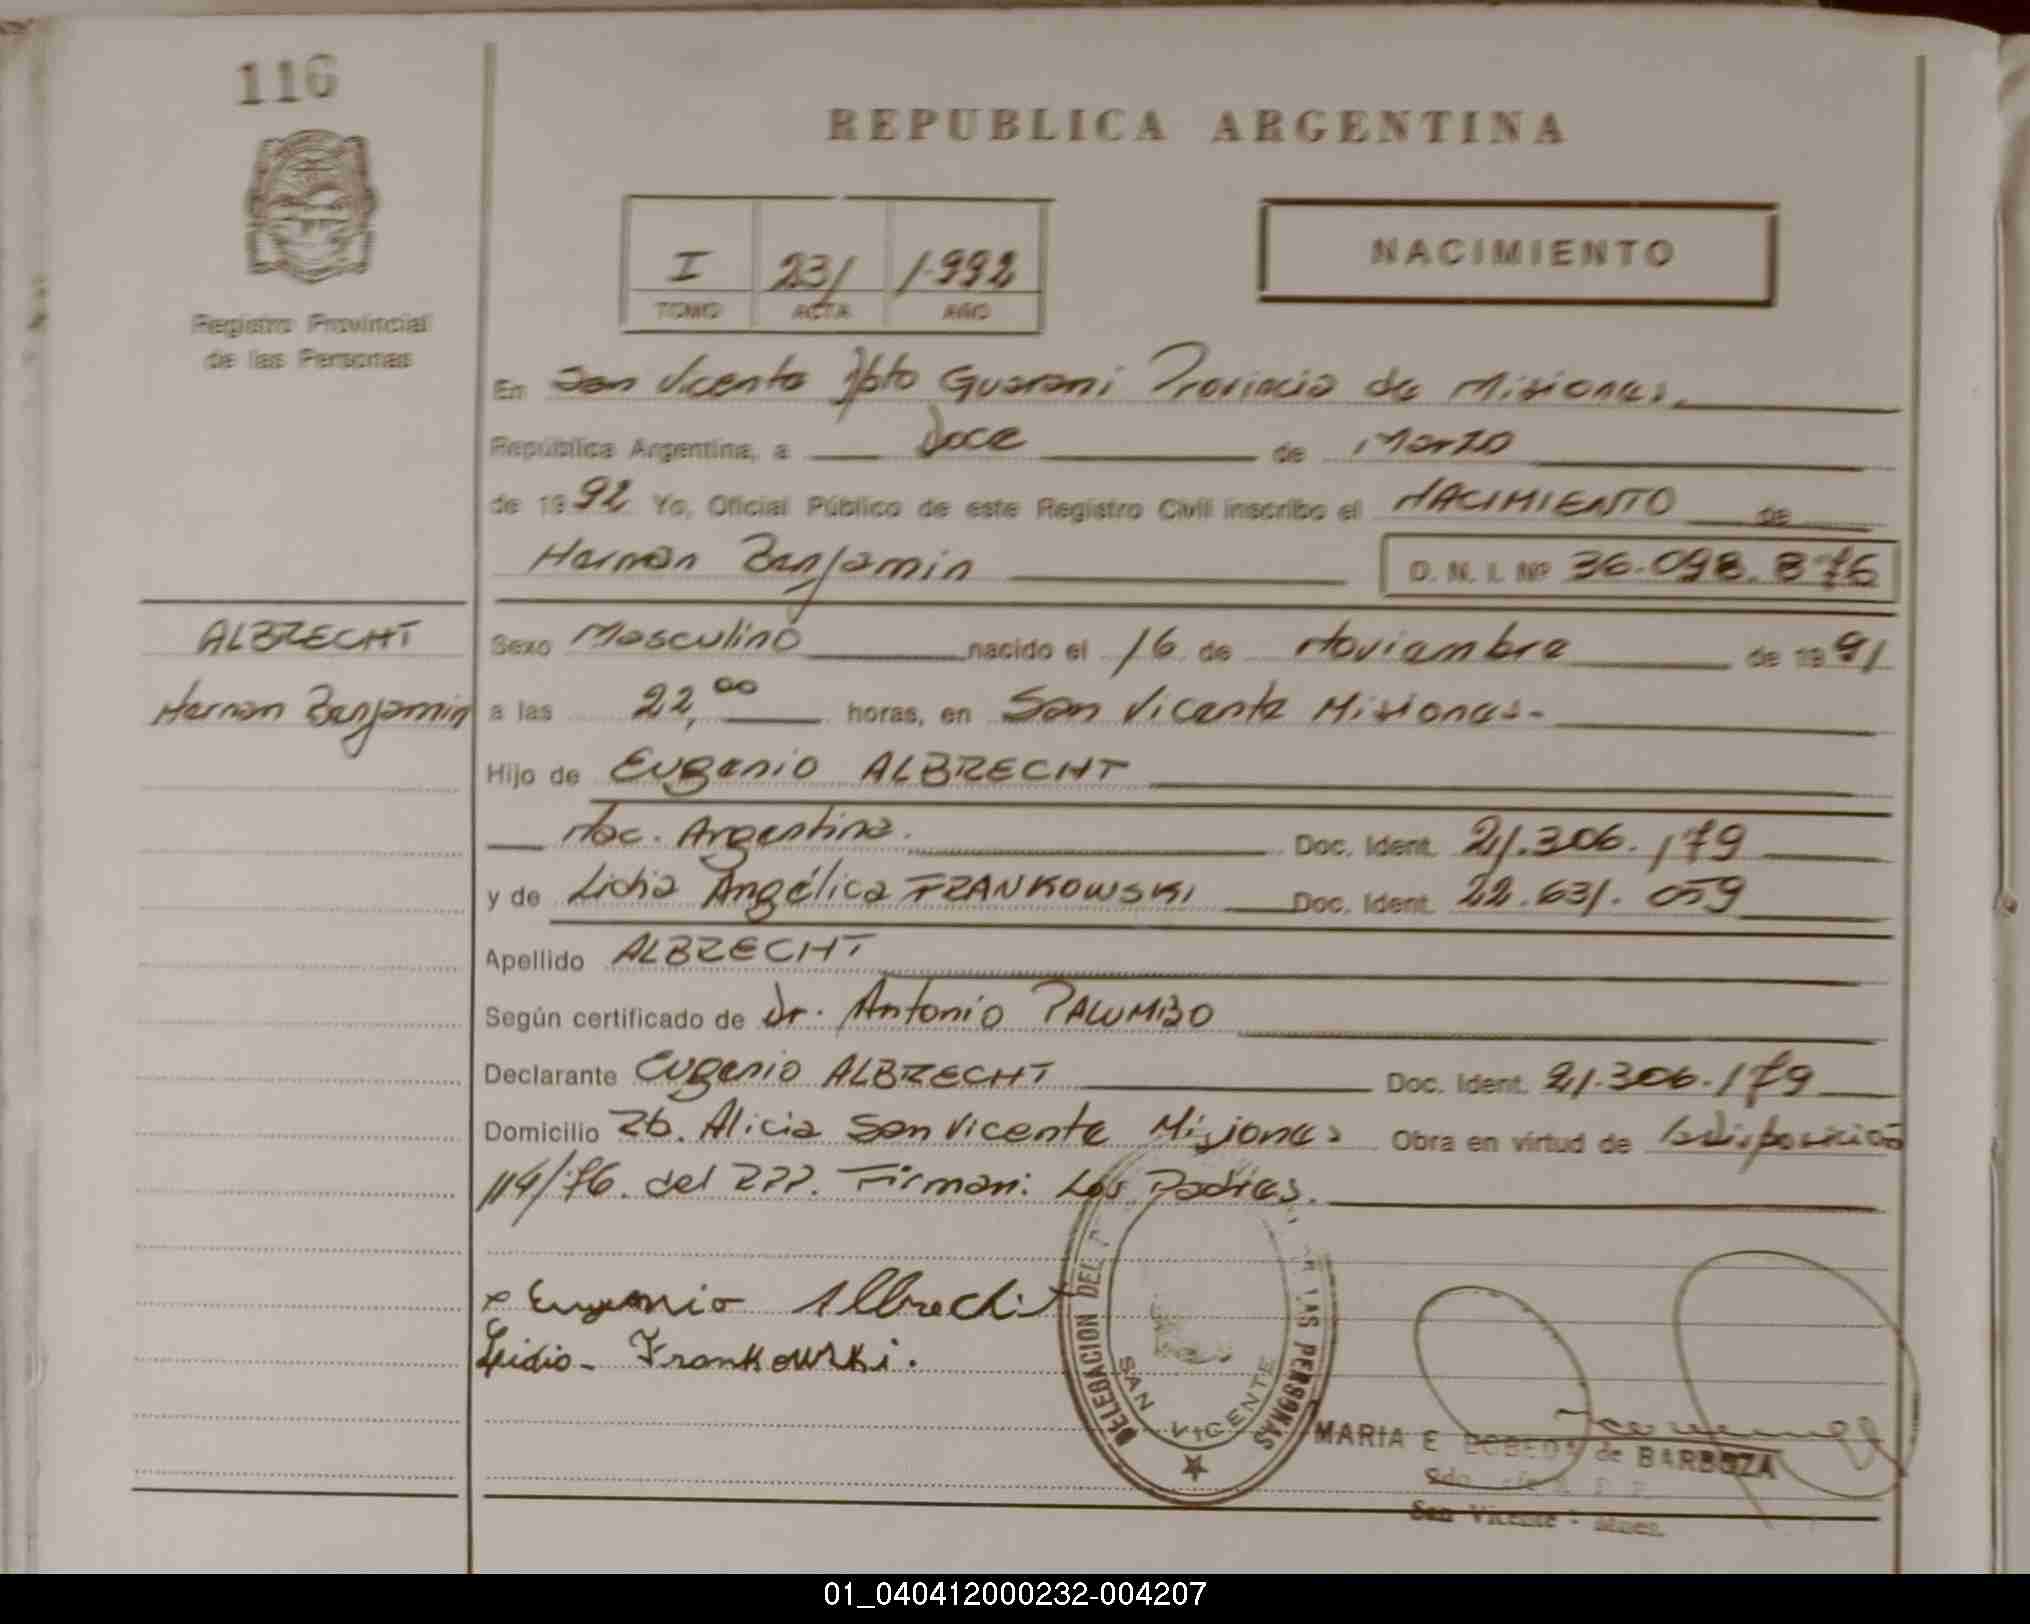 116
REPUBLICA ARGENTINA
I 231 1.992
TOMO ACTA AÑO
NACIMIENTO
Registro Provincial
de las Personas
En San Vicente Dpto Guarani Provincia de Misiones.
República Argentina, a Doce de Marzo
de 1992 Yo, Oficial Público de este Registro Civil inscribo el NACIMIENTO de
Hernan Benjamin D. N. I. Nº 36.098.876
ALBRECHT
Hernan Benjamin
Sexo Masculino nacido el 16 de Noviembre de 1991
a las 22,00 horas, en San Vicente Misiones.-
Hijo de Eugenio ALBRECHT
Nac. Argentina. Doc. Ident. 21.306.179
y de Lidia Angélica FRANKOWSKI Doc. Ident. 22.631.059
Apellido ALBRECHT
Según certificado de Dr. Antonio PALUMBO
Declarante Eugenio ALBRECHT Doc. Ident. 21.306.179
Domicilio Zb. Alicia San Vicente Misiones Obra en virtud de la disposición
114/76. del RPP. Firman: Los Padres.
x Eugenio Albrecht
Lidia - Frankowski.
DELEGACION DEL LAS PERSONAS
SAN VICENTE
MARIA E de BARBOZA
San Vicente - Mnes.
01_040412000232-004207